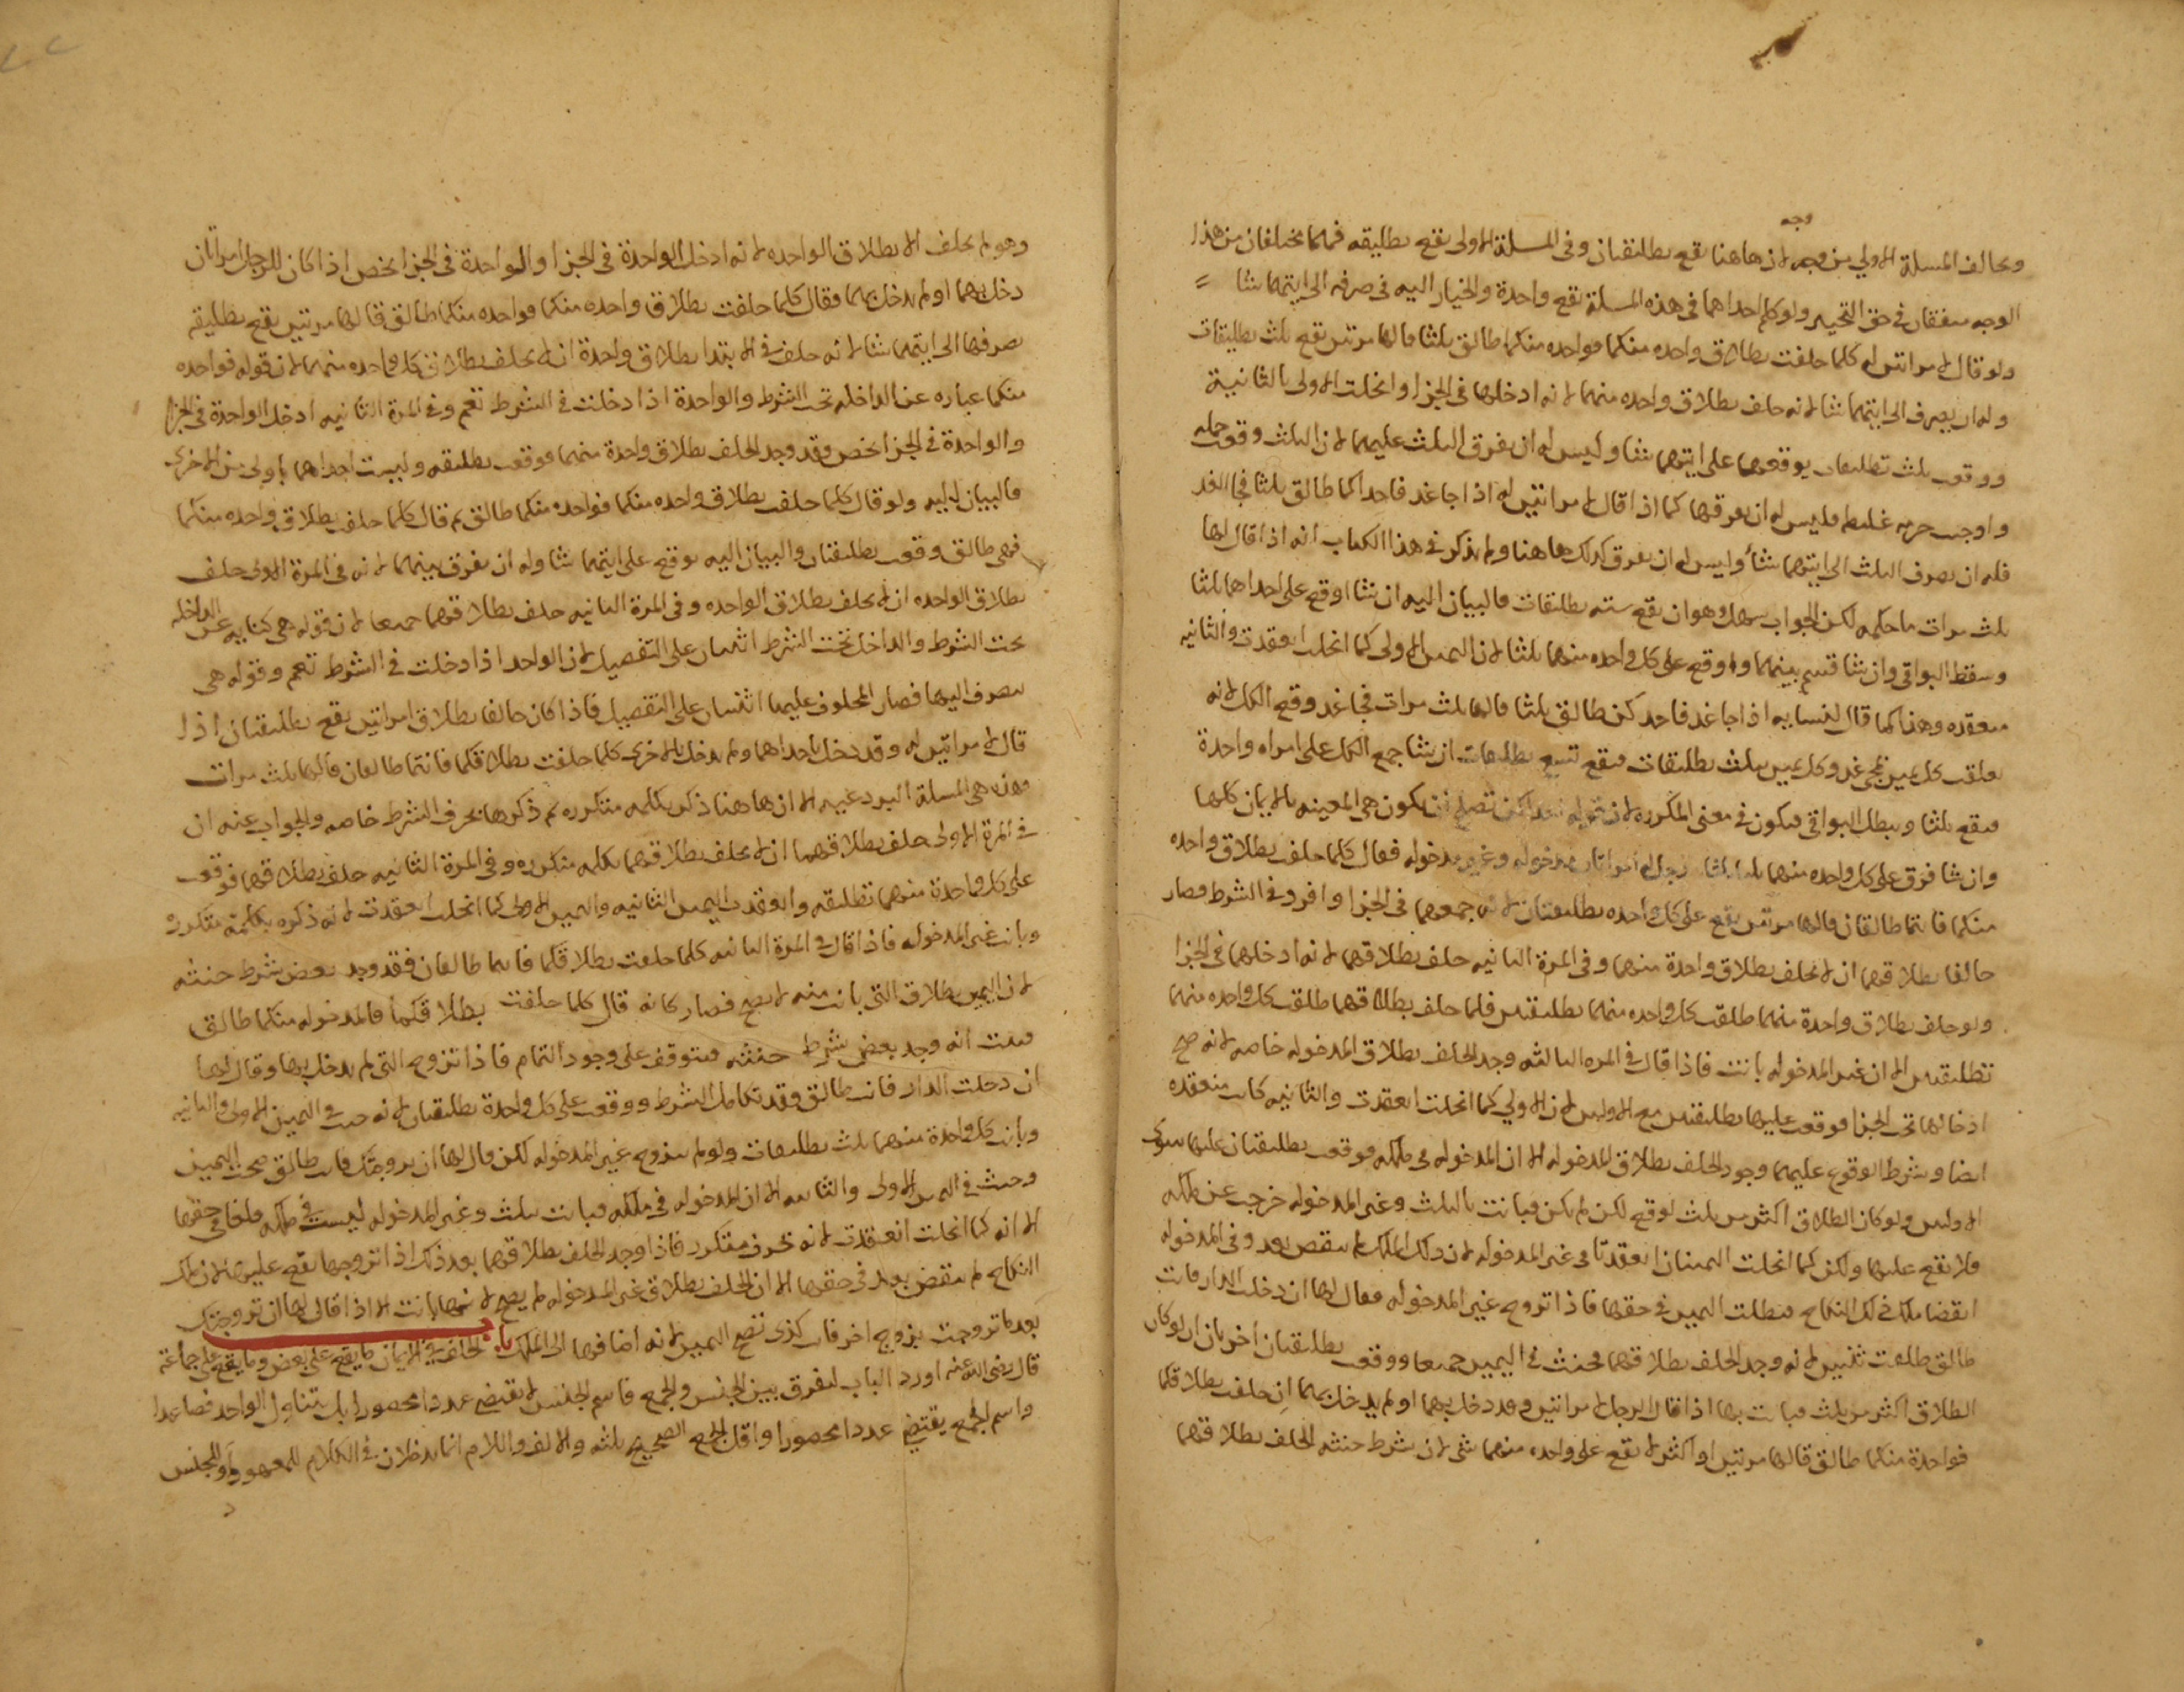 وجه
وبحالف المسلة الاولي من وجه لان هاهنا تقع تطليقتان وفي المسلة الاولى تقع تطليقه فهما مختلفان من هذا
الوجه متفقان في حق التخيير ولو كلم احداهما في هذه المسلة تقع واحدة والخيار اليه في صرفه الى ايتهما شا
ولو قال لامراتين له كلما حلفت بطلاق واحده منكما فواحده منكما طالق ثلثا قالها مرتين تقع ثلث تطليقات
وله ان يصرف الى ايتهما شا لانه حلف بطلاق واحده منهما لانه ادخلها في الجزا وانحلت الاولى بالثانية
ووقعت ثلث تطليقات يوقعها على ايتهما شا وليس له ان يفرق الثلث عليهما لان الثلث وقعت جمله
واوجبت حرمه غليظه فليس له ان يفرقها كما اذا قال لامراتين له اذا جا غد فاحداكما طالق ثلثا فجا الغد
فله ان يصرف الثلث الى ايتهما شا وليس له ان يفرق كذلك هاهنا ولم يذكر في هذا الكتاب انه اذا قال لها
ثلث مرات ما حكمه لكن الجواب سهل وهو ان تقع ستة تطليقات فالبيان اليه ان شا اوقع على احداهما ثلثا
وسقط البواقي وان شا قسم بينهما واوقع على كل واحده منهما ثلثا لان اليمين الاولى كما انحلت انعقدت والثانيه
منعقده وهذا كما قال لنسايه اذا جا غد فاحد كن طالق ثلثا قالها ثلث مرات فجا غد وقع الكل لانه
علقت كل يمين بمجي غد وكل يمين بثلث تطليقات فتقع تسع تطليقات ان شا جمع الكل على امراه واحدة
فتقع ثلثا ويبطل البواقي فيكون في معنى المكرره لان قوله احداكن تصلح ان تكون هي المعينه بالايمان كلها
وان شا فرق على كل واحده منهما ثلثا ثلثا رجل له امراتان مدخوله وغير مدخوله فقال كلما حلف بطلاق واحده
منكما فانتما طالقان قالها مرتين يقع على كل واحده تطليقتان لانه جمعهما في الجزا وافرد في الشرط فصار
حالفا بطلاقهما ان لم يحلف بطلاق واحدة منهما وفي المرة الثانيه حلف بطلاقهما لانه ادخلهما في الجزا
ولو حلف بطلاق واحدة منهما طلقت كل واحده منهما تطليقتين فلما حلف بطلاقهما طلقت كل واحده منهما
تطليقتين الا ان غير المدخوله بانت فاذا قال في المره الثالثه وجد الحلف بطلاق المدخوله خاصه لانه صح
ادخالها تحت الجزا فوقعت عليها تطليقتين مع الاوليين لان الاولي كما انحلت انعقدت والثانيه كانت منعقده
ايضا وشرط الوقوع عليهما وجود الحلف بطلاق المدخوله الا ان المدخوله في ملكه فوقعت تطليقتان عليها سوى
الاوليين ولو كان الطلاق اكثر من ثلث لوقع لكن لم يكن فبانت بالثلث وغير المدخوله خرجت عن ملكه
فلا يقع عليها ولكن كما انحلت اليمينان انعقدتا في غير المدخوله لان ذلك الملك لم ينقض بعد وفي المدخوله
انقضا ملك ذلك النكاح فبطلت اليمين في حقها فاذا تزوج غير المدخوله فقال لها ان دخلت الدار فانت
طالق طلقت ثنتين لانه وجد الحلف بطلاقهما فحنث في اليمين جميعا ووقعت تطليقتان اخريان ان لو كان
الطلاق اكثر من ثلث فبانت بها اذا قال الرجل لامراتين وقد دخل بهما او لم يدخل بهما ان حلفت بطلاقكما
فواحدة منكما طالق قالها مرتين او اكثر لم تقع على واحده منهما شي لان شرط حنثه الحلف بطلاقهما
وهو لم يحلف الا بطلاق الواحده لانه ادخل الواحدة في الجزا والواحدة في الجزا تخص اذا كان للرجل امراتان
دخل بهما او لم يدخل بهما فقال كلما حلفت بطلاق واحده منكما فواحده منكما طالق قالها مرتين يقع تطليقه
يصرفها الى ايتهما شا لانه حلف في الابتدا بطلاق واحدة ان لم يحلف بطلاق كل واحده منهما لان قوله فواحده
منكما عباره عن الداخله تحت الشرط والواحدة اذا دخلت في الشرط تعم وفي المرة الثانيه ادخل الواحدة في الجزا
والواحدة في الجزا تخص وقد وجد الحلف بطلاق واحدة منهما فوقعت تطليقه وليست احداهما باولى من الاخرى
فالبيان اليه ولو قال كلما حلفت بطلاق واحده منكما فواحده منكما طالق ثم قال كلما حلفت بطلاق واحده منكما
فهي طالق وقعت تطليقتان والبيان اليه يوقع على ايتهما شا وله ان يفرق بينهما لانه في المرة الاولى حلف
بطلاق الواحده ان لم يحلف بطلاق الواحده وفي المرة الثانيه حلف بطلاقهما جميعا لان قوله هي كنايه عن الداخله
تحت الشرط والداخل تحت الشرط اثنتان على التفصيل لان الواحد اذا دخلت في الشرط تعم وقوله هي
ينصرف اليها فصار المحلوف عليهما اثنتان على التفصيل فاذا كان حالفا بطلاق امراتين يقع تطليقتان اذا
قال لامراتين له وقد دخل باحداهما ولم يدخل بالاخرى كلما حلفت بطلاقكما فانتما طالقان قالها ثلث مرات
وهذه هي المسلة البردعيه الا ان هاهنا ذكر بكلمه متكرره ثم ذكرها بحرف الشرط خاصه والجواب عنه ان
في المرة الاولى حلف بطلاقهما ان لم يحلف بطلاقهما بكلمه متكرره وفي المرة الثانيه حلف بطلاقهما فوقعت
على كل واحدة منهما تطليقه وانعقدت اليمين الثانيه واليمين الاولى كما انحلت انعقدت لانه ذكره بكلمة متكررة
وبانت غير المدخوله فاذا قال في المرة الثانيه كلما حلفت بطلاقكما فانتما طالقان فقد وجد بعض شرط حنثه
لان اليمين بطلاق التي بانت منه لا يصح فصار كانه قال كلما حلفت بطلاقكما فالمدخوله منكما طالق
فثبت انه وجد بعض شرط حنثه فيتوقف على وجود التمام فاذا تزوج التي لم يدخل بها وقال لها
ان دخلت الدار فانت طالق وقد تكامل الشرط ووقعت على كل واحدة تطليقتان لانه حنث في اليمين الاولى والثانيه
وبانت كل واحدة منهما بثلث تطليقات ولو لم يتزوج غير المدخوله لكن قال لها ان تزوجتك فانت طالق صحت اليمين
وحنث في اليمين الاولى والثانيه الا ان المدخوله في ملكه فبانت بثلث وغير المدخوله ليست في ملكه فلغا في حقها
الا انه كما انحلت انعقدت لانه بحرف متكرر فاذا وجد الحلف بطلاقهما بعد ذلك اذا تزوجها يقع عليها لان ملك
النكاح لم ينقض بعد في حقها الا ان الحلف بطلاق غير المدخوله لم يصح لانها بانت الا اذا قال لها ان تزوجتك
بعد ما تزوجت بزوج اخر فانت كذى تصح اليمين لانه اضافها الى الملك باب الحلف في الايمان ما يقع على بعض وما يقع على جماعة
قال رضي الله عنه اورد الباب لنفرق بين الجنس والجمع فاسم الجنس لا يقتضي عددا محصورا بل يتناول الواحد فصاعدا
واسم الجمع يقتضي عددا محصورا واقل الجمع الصحيح ثلثه والالف واللام انما يدخلان في الكلام للمعهود او للجنس